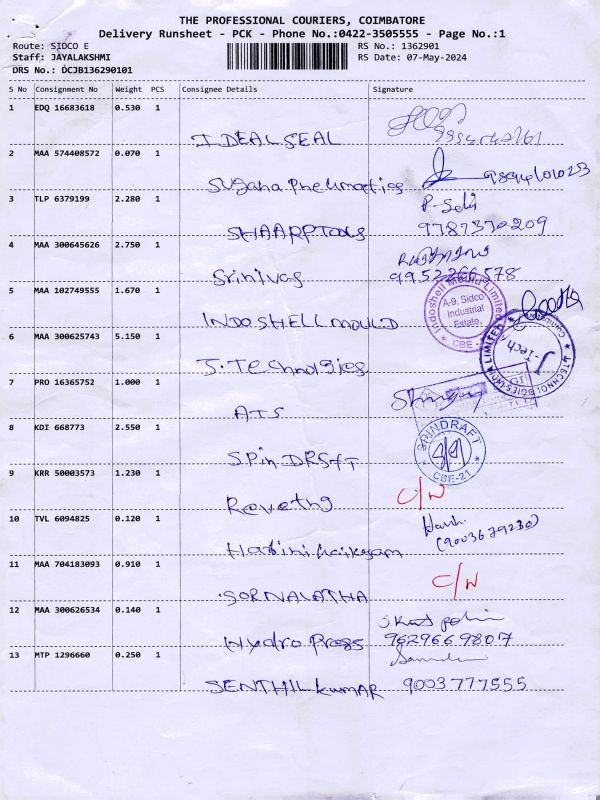 THE PROFESSIONAL COURIERS, COIMBATORE
Delivery Runsheet - PCK - Phone No.:0422-3505555 - Page No.:1
Route: SIDCO E RS No.: 1362901
Staff: JAYALAKSHMI RS Date: 07-May-2024
DRS No.: DCJB136290101
S No Consignment No Weight PCS Consignee Details Signature
1 EDQ 16683618 0.530 1
IDEAL SEAL
2 MAA 574408572 0.070 1
Suguna Pneumatics
3 TLP 6379199 2.280 1 P. Selvi
SHAARPTOOLS 9787370209
4 MAA 300645626 2.750 1
Srinivas 9952266578
5 MAA 102749555 1.670 1
Indoshell Mould Limited
A-9, Sidco
Industrial
Estate,
CBE
INDOSHELL MOULD
6 MAA 300625743 5.150 1
J-Tech
J. Technologies
7 PRO 16365752 1.000 1
ATS
8 KDI 668773 2.550 1
SPINDRAFT
CBE-21
SPin DRSft
9 KRR 50003573 1.230 1 C/N
Revethy
10 TVL 6094825 0.120 1
(9003679230)
Harini
11 MAA 704183093 0.910 1 C/N
SORNALATHA
12 MAA 300626534 0.140 1
Hydro Press 9629669807
13 MTP 1296660 0.250 1
SENTHIL KUMAR 9003777555